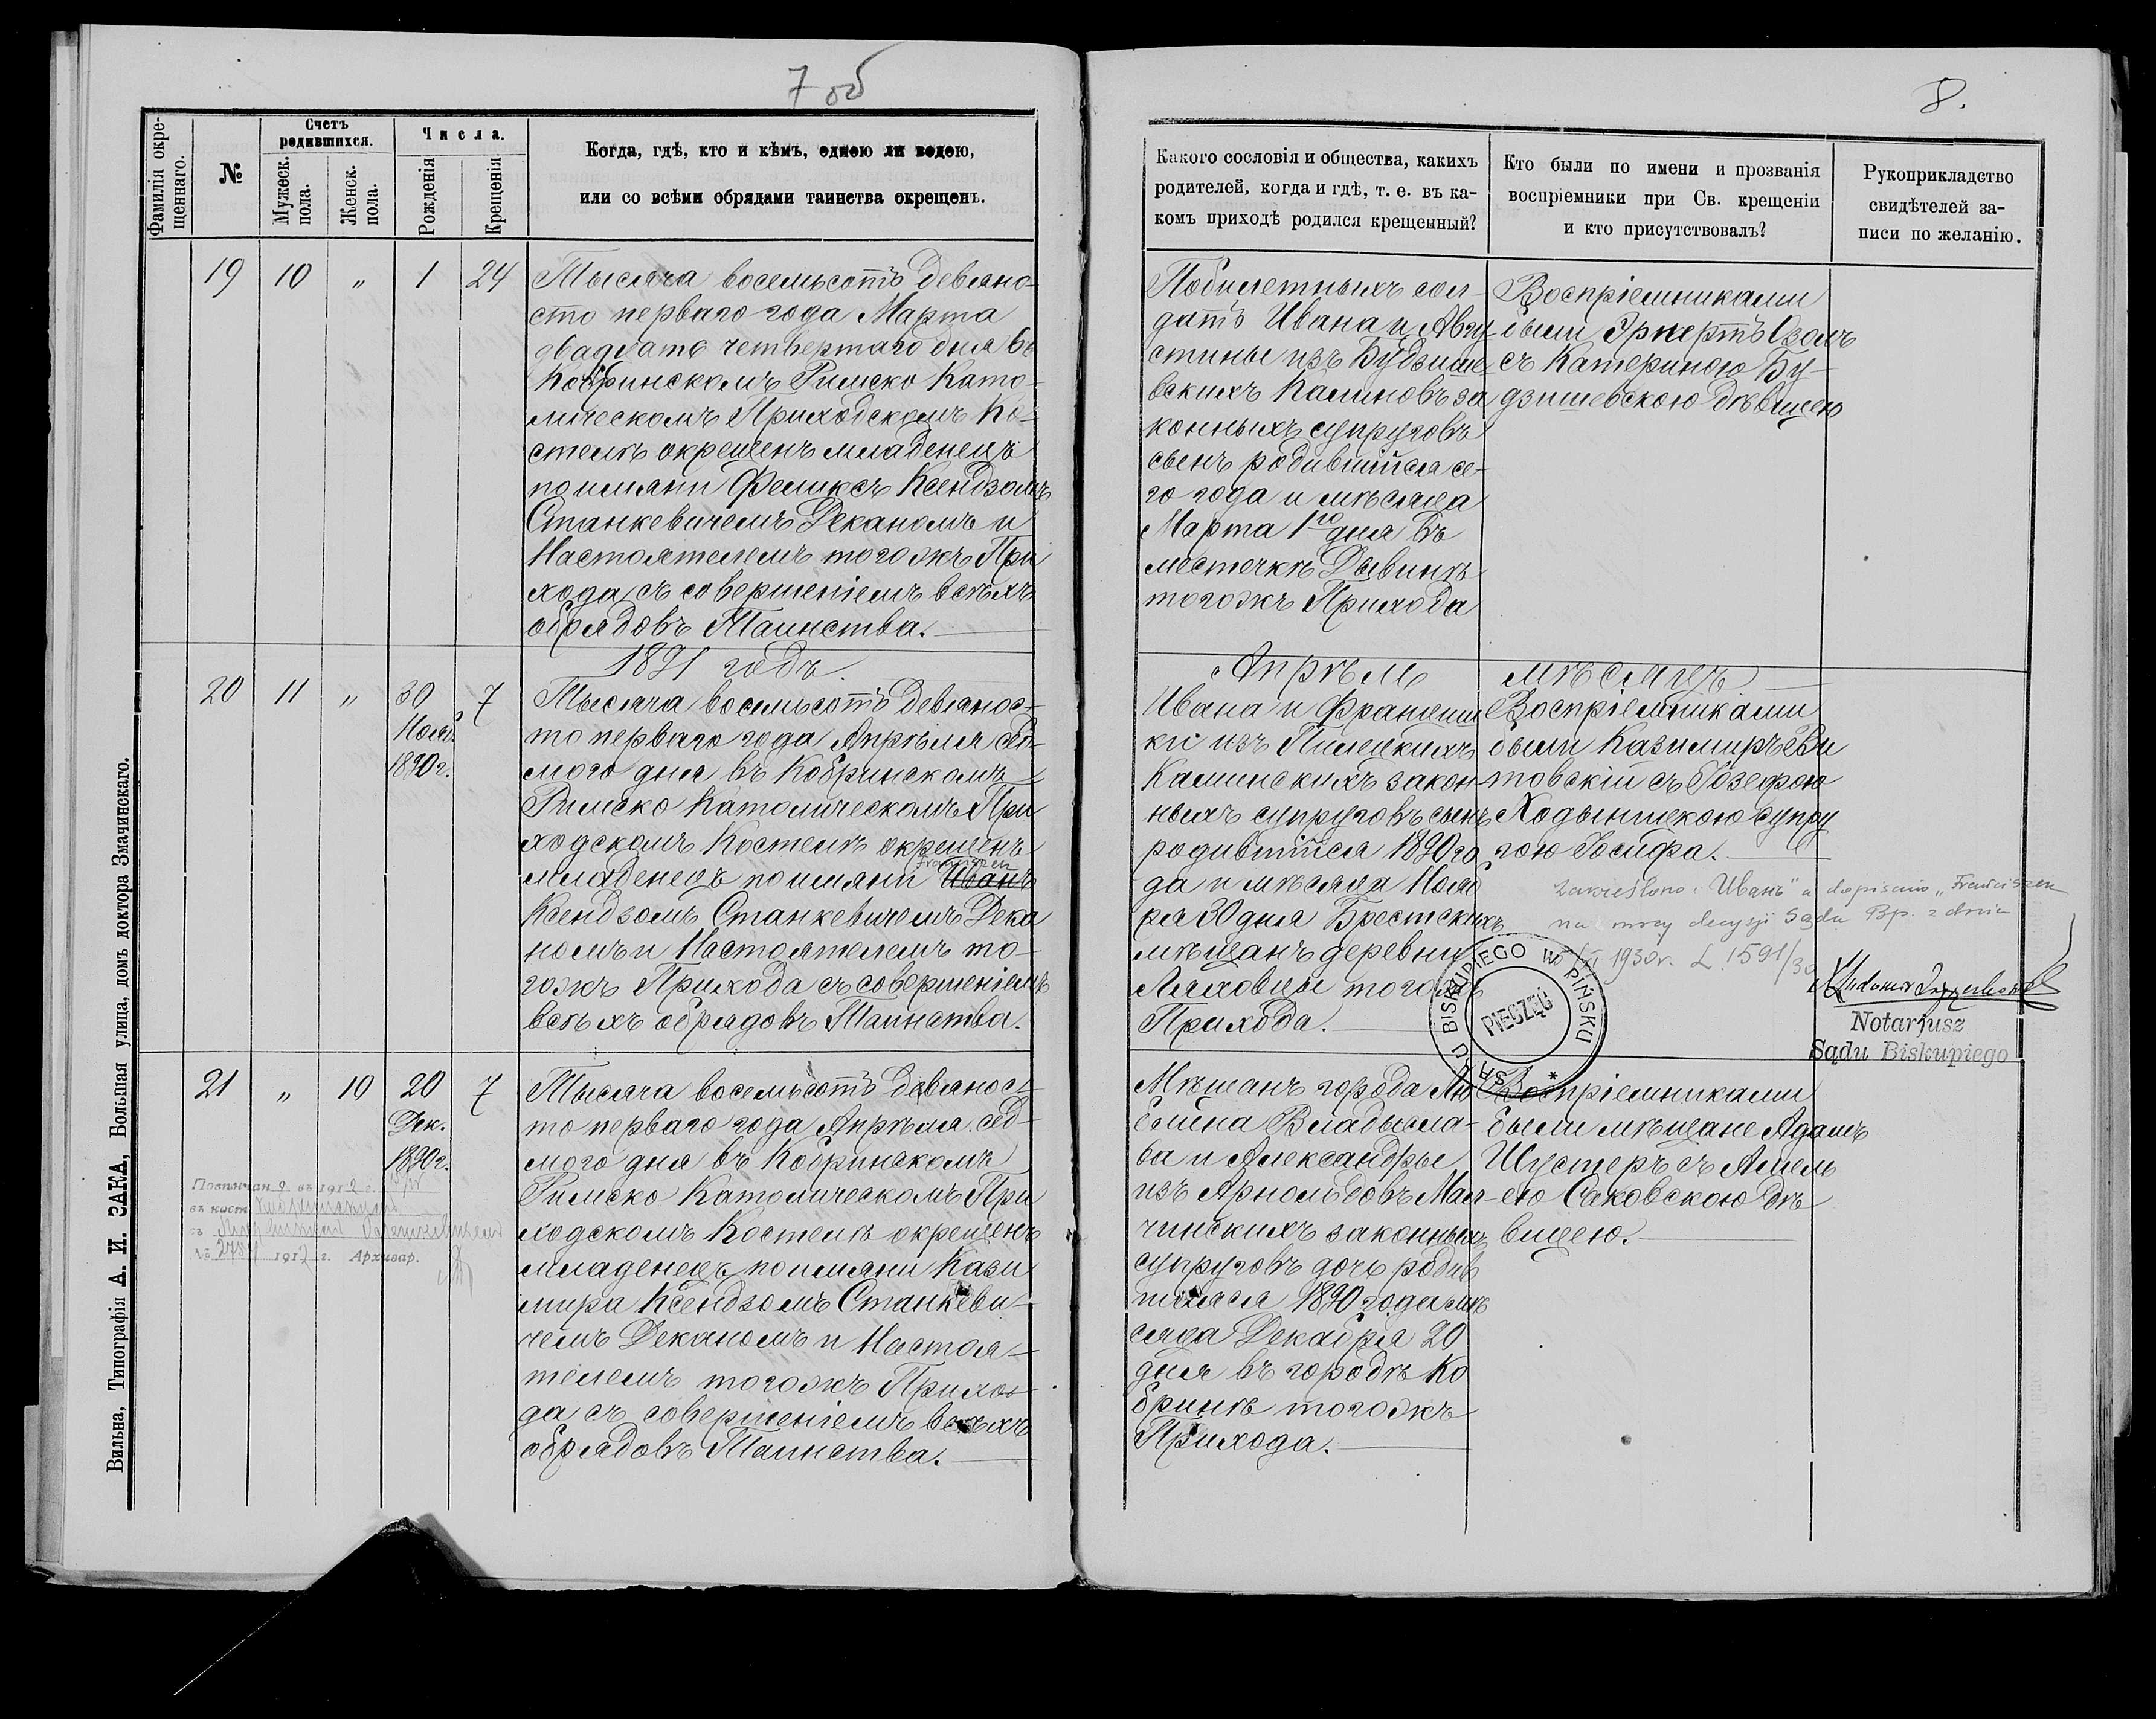 7 об
8.
Фамилія окре-
щеннаго.
№
Счетъ
родившихся.
Мужеск.
пола.
Женск.
пола.
Числа.
Рожденія
Крещенія
Когда, гдѣ, кто и кѣмъ, одною ли водою,
или со всѣми обрядами таинства окрещенъ.
Какого сословія и общества, какихъ
родителей, когда и гдѣ, т. е. въ ка-
комъ приходѣ родился крещенный?
Кто были по имени и прозванія
воспріемники при Св. крещеніи
и кто присутствовалъ?
Рукоприкладство
свидѣтелей за-
писи по желанію.
19 10 „ 1 24
Тысяча восемьсотъ девяно-
сто перваго года Марта
двадцать четвертаго дня въ
Кобринскомъ Римско Като-
лическомъ Приходскомъ Ко-
стелѣ окрещенъ младенецъ
по имяни Феликсъ Ксендзомъ
Станкевичемъ Деканомъ и
Настоятелемъ тогожъ При
хода, съ совершеніемъ всѣхъ
обрядовъ Таинства.
Побилетныхъ сол-
датъ Ивана и Авгу-
стины изъ Будзише-
вскихъ Калиновъ за
конныхъ супруговъ
сынъ родившійся се-
го года и мѣсяца
Марта 1го дня въ
местечкѣ Дывинѣ
тогожъ Прихода
Воспріемниками
были Эрнертъ Озолъ
съ Катериною Бу-
дзишевскою дѣвицею
1891 годъ.
Апрѣль мѣсяцъ
20 11 „ 30 7
Нояб.
1890г.
Тысяча восемьсотъ девянос-
то перваго года Апрѣля сед-
мого дня въ Кобринскомъ
Римско Католическомъ При
ходскомъ Костелѣ окрещенъ
Franciszek
младенецъ по имяни Иванъ
Ксендзомъ Станкевичемъ Дека
номъ и Настоятелемъ то-
гожъ Прихода съ совершеніемъ
всѣхъ обрядовъ Таинства.
Ивана и Франциш
ки изъ Пилецкихъ
Калинскихъ закон-
ныхъ супруговъ сынъ
родившійся 1890 го
да и мѣсяца Нояб
ря 30 дня Брестскихъ
мѣщанъ деревни
Ляховцы тогожъ
Прихода.
Воспріемниками
были Казимиръ Ви
товскій съ Іозефою
Ходынискою супру
гою Іосифа.
zakreślono „Иванъ" a dopisano „Franciszek
na mocy decyzji Sądu Bp. z dnia
1930r. L. 1591/30
SĄD BISKUPIEGO W PIŃSKU
PIECZĘĆ
Notarjusz
Sądu Biskupiego
21 „ 10 20 7
Дек.
1890г.
Тысяча восемьсотъ девянос-
то перваго года Апрѣля сед-
мого дня въ Кобринскомъ
Римско Католическомъ При
ходскомъ Костелѣ окрещенъ
младенецъ по имяни Кази
мира Ксендзомъ Станкеви-
чемъ Деканомъ и Настоя-
телемъ тогожъ Прихо-
да съ совершеніемъ всѣхъ
обрядовъ Таинства.
Мѣщанъ города Лю
блина Владысла-
ва и Александры
изъ Арнольдовъ Мал-
чинскихъ законныхъ
супруговъ дочь родив
шаяся 1890 года мѣ
сяца Декабря 20
дня въ городѣ Ко
бринѣ тогожъ
Прихода.
Воспріемниками
были мѣщане Адамъ
Шустеръ съ Амель
ею Саковскою дѣ
вицею.
Повѣнчан а въ 1912 г.
въ кост.
съ
№ 1912 г. Архивар.
Вильна, Типографія А. И. ЗАКА, Большая улица, домъ доктора Змачинскаго.